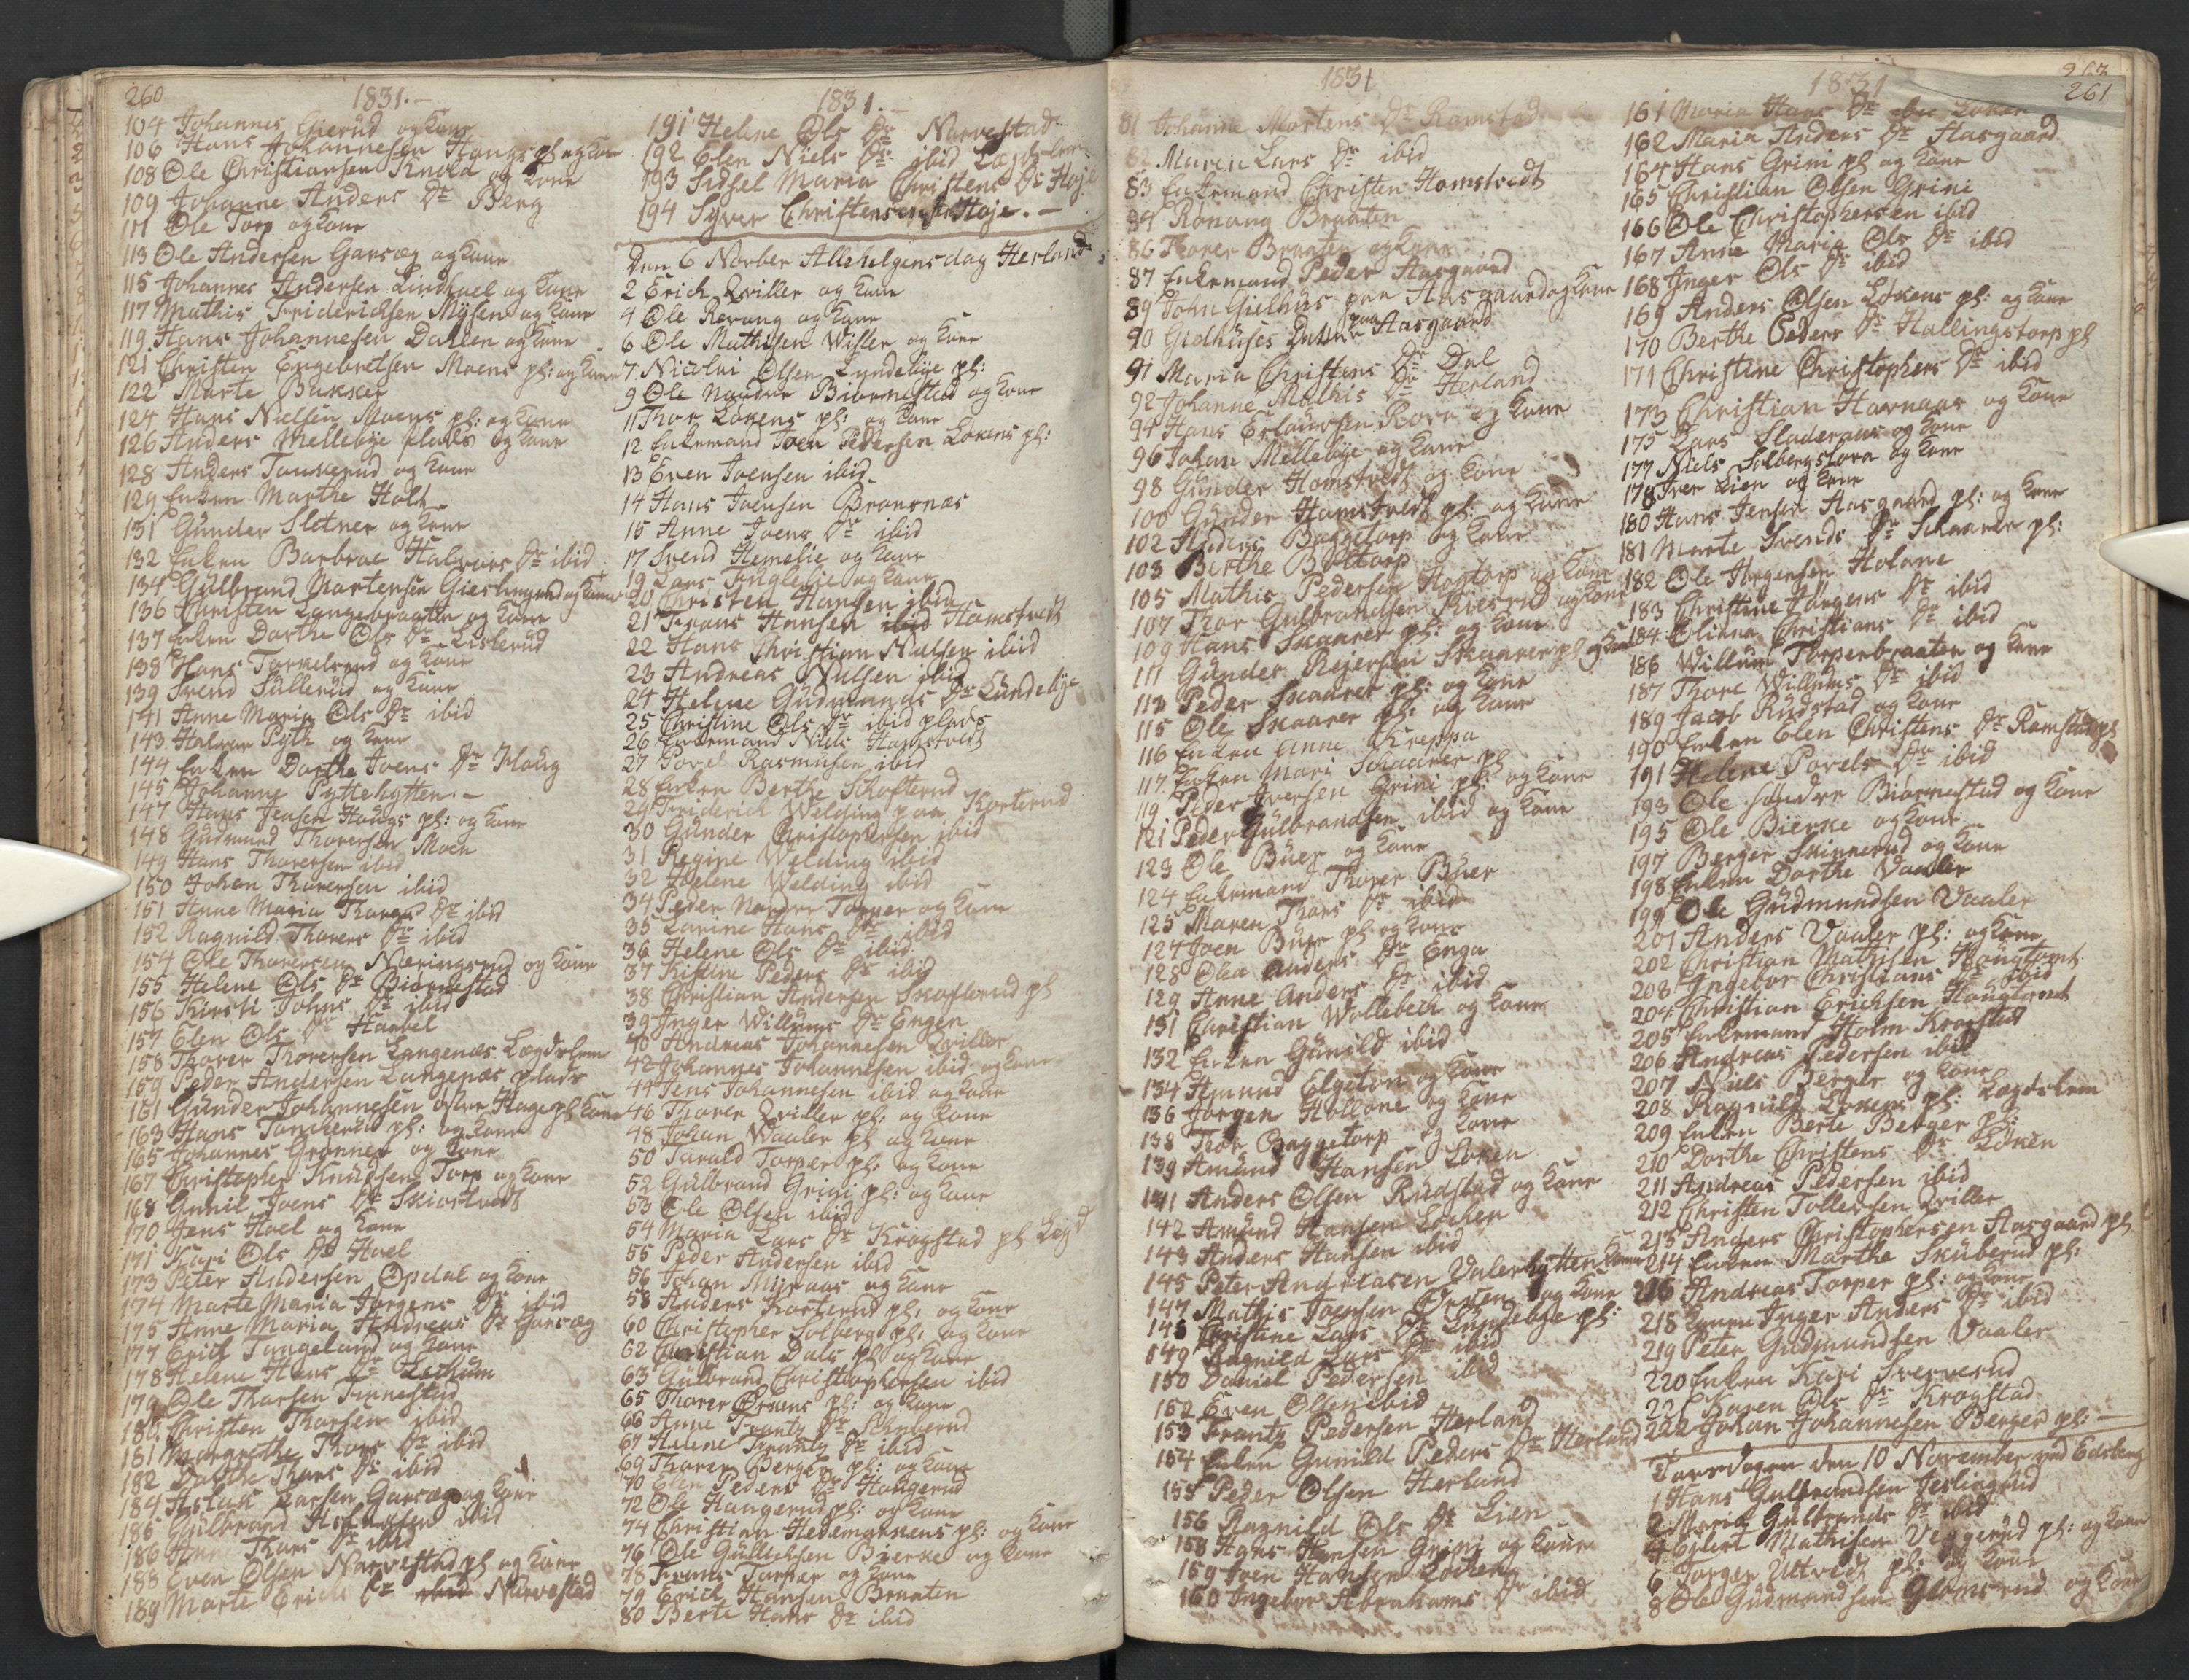 260
1831.-
104 Johannes Gierud og Kone
106 Hans Johannesen Haugs pl og Kone
108 Ole Christiansen Knold og Kone
109 Johanne Anders Dr Berg
111 Ole Torp og Kone
113 Ole Andersen Garsæg og Kone
115 Johannes Andersen Lindhael og Kone
117 Mathis Fridericksen Mysen og Kone
119 Hans Johannesen Dallen og Kone
121 Christen Engebretsen Moens pl: og Kone
122 Marte Bakker
124 Hans Nielsen Moens pl: og Kone
126 Anders Mellebye plads og Kone
128 Anders Tankerud og Kone
129 Enken Marthe Holt
131 Gunder Sletner og Kone
132 Enken Barbroe Halvors Dr ibid
134 Gulbrand Mortensen og Kone
136 Christen Langebraaten og Kone
137 Enken Dorthe Ols Dr Listerud
138 Hans Torkelsrud og Kone
139 Svend Sullerud og Kone
141 Anne Maria Ols Dr ibid
143 Halvor Pytt og Kone
144 Enken Dorthe Joens Dr Haug
145 Johanne Pyttehytten.-
147 Hans Jensen Haugs pl: og Kone
148 Gudmund Thorersen Moen
149 Hans Thorersen ibid
150 Johan Thorersen ibid
151 Anne Maria Thorers Dr ibid
152 Ragnild Thorers Dr ibid
154 Ole Thoresen Næringsrud og Kone
155 Helene Ols Dr Biørnestad
156 Kirsti Johns Dr ibid
157 Elen Ols Dr Harbel
158 Thorer Thorersen Langenæs Lægdslem
159 Peder Andersen Langenæs plads
161 Gunder Johannesen østre Hage pl Kone
163 Hans Tancherud pl: og Kone
165 Johannes Grønnes og Kone
167 Christopher Knudsen Torp og Kone
168 Gunil Joens Dr Skiørtvedt
170 Jens Hoel og Kone
171 Kari Ols Dr Hoel
173 Peter Andersen Opdal og Kone
174 Marte Maria Jørgens Dr ibid
175 Anne Maria Andreas Dr Garsæg
177 Erich Tangeland og Kone
178 Helene Hans Dr Lechum
179 Ole Thorsen Finnestad
180 Christen Thorsen ibid
181 Margrethe Thors Dr ibid
182 Dorthe Thors Dr ibid
184 Aslak Larsen Garsæg og Kone
185 Gulbrand ibid
186 Anne Thors Dr ibid
188 Even Olsen Narvestad pl og Kone
189 Marte Erichs Dr ibid Narvestad
1831.-
191 Helene Ols Dr Narvestad
192 Elen Niels Dr ibid Lægdslem
193 Sidsel Maria Christens Dr Høje
194 Syver Christensen Høje.-
Den 6 Novber Allehelgensdag Herland
2 Erich Qviller og Kone
4 Ole Revaug og Kone
6 Ole Mathisen Wisler og Kone
7 Nicolai Olsen Lyndebye pl:
9 Ole Nordre Biørnestad og Kone
11 Thor Løkens pl: og Kone
12 Enkemand Joen Pedersen Løkens pl:
13 Even Joensen ibid
14 Hans Joensen Bronsnæs
15 Anne Joens Dr ibid
17 Svend Hemelie og Kone
19 Lars Tinglebye og Kone
20 Christen Hansen ibid
21 Frans Hansen ibid Hamstvedt
22 Hans Christian Nielsen ibid
23 Andreas Nielsen ibid
24 Helene Gudmunds Dr Lundebye
25 Christine Ols Dr ibid plads
26 Enkemand Niels Hamstvedt
27 Povel Rasmusen ibid
28 Enken Berthe Skofterud
29 Friderich Welding paa Korterud
30 Gunder Christophersen ibid
31 Regine Welding ibid
32 Helene Welding ibid
34 Peder Nordre Torper og Kone
35 Karine Hans Dr ibid
36 Helene Ols Dr ibid
37 Kistine Peders Dr ibid
38 Christian Andersen Skofterud pl
39 Inger Willums Dr Engen
40 Andreas Johannesen Qviller
42 Johannes Johannesen ibid og Kone
44 Jens Johannesen ibid og Kone
46 Thorer Qviller pl: og Kone
48 Johan Waaler pl og Kone
50 Tarald Torper pl: og Kone
52 Gulbrand Grini pl: og Kone
53 Ole Olsen ibid
54 Maria Lars Dr Krogstad pl Lægd
55 Peder Andersen ibid
56 Johan Myraas og Kone
58 Anders Korterud pl: og Kone
60 Christopher Solberg pl: og Kone
62 Christian Dals pl og Kone
63 Gulbrand Christophersen ibid
65 Thorer Ørnens pl: og Kone
66 Anne Frantz Dr
67 Helene Frantz Dr ibid
69 Thorer Berger pl: og Kone
70 Elen Peders Dr Haugerud
72 Ole Haugerud pl: og Kone
74 Christian Hedemarkens pl: og Kone
76 Ole Gullichsen Bierke og Kone
78 Frans Torper og Kone
79 Erich Hansen Braaten
80 Berte Hans Dr ibid
1831
81 Johanne Mortens Dr Ramstad
82 Maren Lars Dr ibid
83 Enkemand Christen Hamstvedt
84 Braaten
86 Thorer Braaten og Kone
87 Enkemand Peder Aasgaard
89 John Gielhus paa Aasgaard og Kone
90 Gielhuses Datter paa Aasgaard
91 Maria Christens Dr Dal
92 Johanne Mathis Dr Herland
94 Hans Erlandsen Korn og Kone
96 Johan Mellebye og Kone
98 Gunder Hamstvedt og Kone
100 Gunder Hamstvedt pl: og Kone
102 Anders Baggetorp og Kone
103 Berthe Boltorp
105 Mathis Pedersen og Kone
107 Thor Gulbrandsen og Kone
109 Hans Skaarer pl: og Kone
111 Gunder Reiersen Skaarer pl og Kone
113 Peder Skaarer pl: og Kone
115 Ole Skaarer pl: og Kone
116 Enken Anne Kreppa
117 Enken Mari Skaarer pl
119 Peder Iversen Grini pl: og Kone
121 Peder Gulbrandsen ibid og Kone
123 Ole Buer og Kone
124 Enkemand Thorer Buer
125 Maren Thors Dr ibid
127 Joen Buer pl og Kone
128 Olea Anders Dr Enga
129 Anne Anders Dr ibid
131 Christian Wollebech og Kone
132 Enken Gunild ibid
134 Amund Elgeton og Kone
136 Jørgen Hollone og Kone
138 Thor Baggetorp og Kone
139 Amund Hansen Løken
141 Anders Olsen Rudstad og Kone
142 Amund Hansen Lochen
143 Anders Hansen ibid
145 Peter Andreasen Valerhytten Kone
147 Mathis Joensen Ørnen og Kone
148 Christine Lars Dr Lundebye pl:
149 Ragnild Lars Dr ibid
150 Daniel Pedersen ibid
152 Even Olsen ibid
153 Frantz Pedersen Herland
154 Enken Gunild Peders Dr Herland
155 Peder Olsen Herland
156 Ragnild Ols Dr Lien
158 Hans Hansen Grini og Kone
159 Joen Hansen Lochen
160 Ingebor Abrahams Dr ibid
1831
261
161 Maria Hans Dr Løken
162 Maria Anders Dr Aasgaard
164 Hans Grini pl og Kone
165 Christian Olsen Grini
166 Ole Christophersen ibid
167 Anne Maria Ols Dr ibid
168 Inger Ols Dr ibid
169 Anders Olsen Løkens pl: og Kone
170 Berthe Peders Dr Hallingstorp pl
171 Christine Christophers Dr ibid
173 Christian Havnaas og Kone
175 Lars Sladeraas og Kone
177 Niels Solbergfora og Kone
178 Iver Lien og Kone
180 Hans Jensen Aasgaard pl: og Kone
181 Marte Svends Dr Skaarer pl:
182 Ole Jørgensen Holone
183 Christine Jørgens Dr ibid
184 Oliana Christians Dr ibid
186 Willum Torperbraaten og Kone
187 Thore Willums Dr ibid
189 Jacob Rudstad og Kone
190 Enken Elen Christens Dr Ramstad pl
191 Helene Povels Dr ibid
193 Ole Søndre Biørnestad og Kone
195 Ole Bierke og Kone
197 Berger Skinnerud og Kone
198 Enken Dorthe Vaaler
199 Ole Gudmundsen Vaaler
201 Anders Vaaler pl: og Kone
202 Christian Mathisen Haugtomt
208 Ingebor Christians Dr ibid
204 Christian Erichsen Haugtomt
205 Enkemand Holm Krogstad
206 Andreas Pedersen ibid
207 Niels Berger og Kone
208 Ragnild Løkens pl: Lægdslem
209 Enken Berte Berger pl:
210 Dorthe Christens Dr Løken
211 Andreas Pedersen ibid
212 Christen Tollefsen Qviller
213 Anders Christophersen Aasgaard pl
214 Enken Marthe Skuberud pl:
216 Andreas Torper pl: og Kone
218 Konen Inger Anders Dr ibid
219 Peter Gudmundsen Vaaler
220 Enken Kari Sververud
221 Karen Ols Dr Krogstad
222 Johan Johannesen Berger pl:-
Torsdagen den 10 November ved Edsberg
1 Hans Gulbrandsen Jeslingrud
2 Maria Gulbrands Dr ibid
4 Eslert Mathisen Veggerud pl: og Kone
6 Torger Utvedt pl: og Kone
8 Ole Gudmundsen Glomsrud og Kone